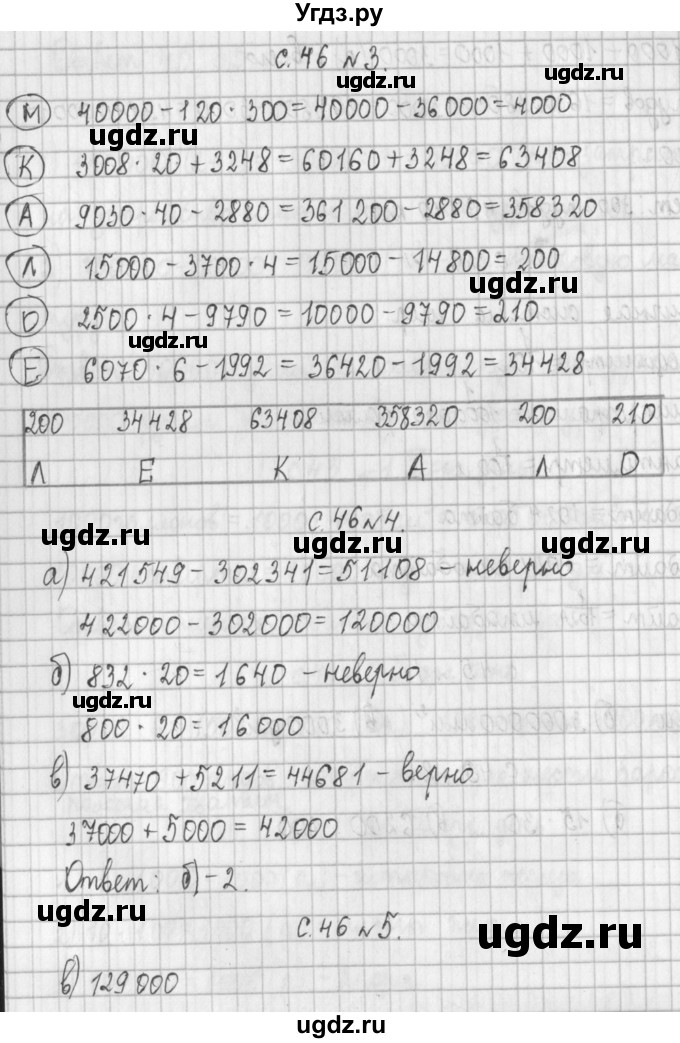 Угдз.ру
с. 46 №3.
ugdz.ru ugdz.ru
М 40000 – 120 · 300 = 40000 – 36000 = 4000
ugdz.ru
К 3008 · 20 + 3248 = 60160 + 3248 = 63408
А 9030 · 40 – 2880 = 361200 – 2880 = 358320
ugdz.ru ugdz.ru
Л 15000 – 3700 · 4 = 15000 – 14800 = 200
О 2500 · 4 – 9790 = 10000 – 9790 = 210
ugdz.ru
Е 6070 · 6 – 1992 = 36420 – 1992 = 34428
200 34428 63408 358320 200 210
Л Е К А Л О
с. 46 №4.
ugdz.ru ugdz.ru ugdz.ru
а) 421549 – 302341 = 51108 – неверно
422000 – 302000 = 120000
б) 832 · 20 = 1640 – неверно
ugdz.ru ugdz.ru
800 · 20 = 16000
в) 37470 + 5211 = 44681 – верно
37000 + 5000 = 42000
Ответ: б) – 2.
ugdz.ru ugdz.ru
с. 46 №5.
ugdz.ru
в) 129000
ugdz.ru